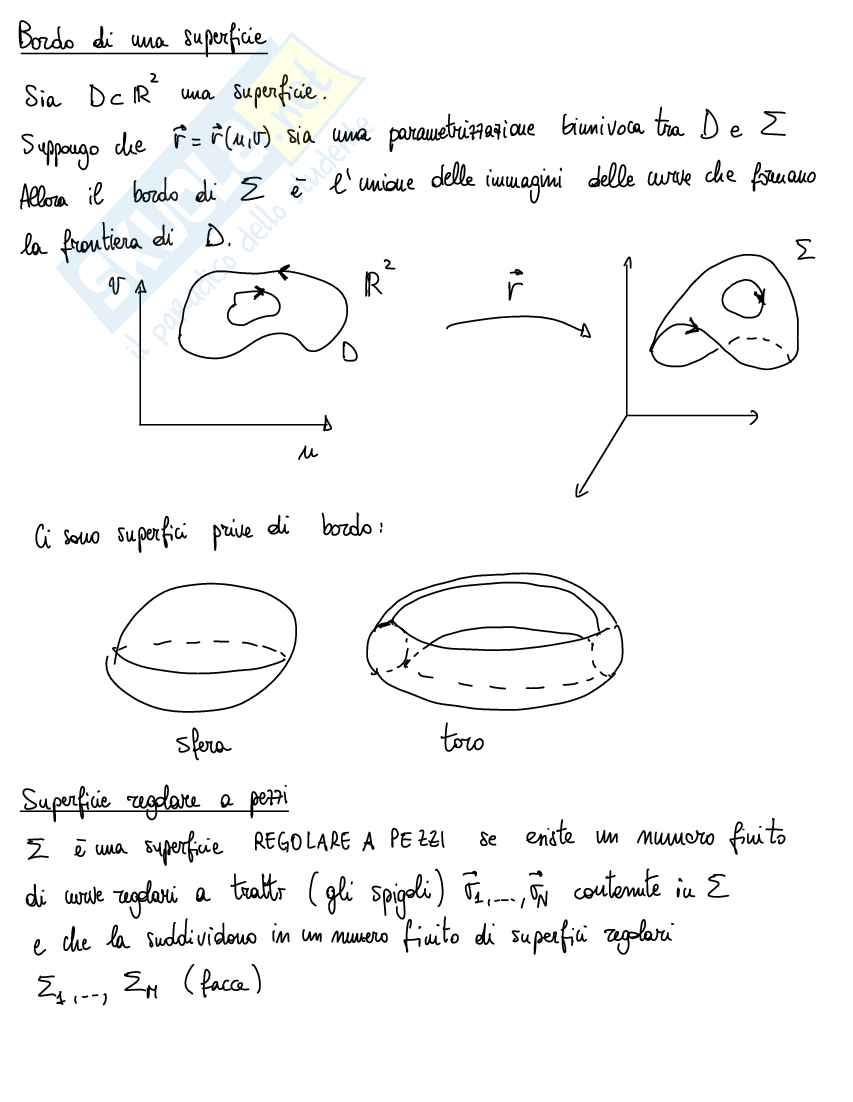 Bordo di una superficie
Sia D⊂ℝ² una superficie.
Suppongo che r⃗ = r⃗(u,v) sia una parametrizzazione biunivoca tra D e Σ
Allora il bordo di Σ è l'unione delle immagini delle curve che formano
la frontiera di D.
v
ℝ²
D
u
r⃗
Σ
Ci sono superfici prive di bordo:
sfera
toro
Superficie regolare a pezzi
Σ è una superficie REGOLARE A PEZZI se esiste un numero finito
di curve regolari a tratti (gli spigoli) σ⃗1,...,σ⃗N contenute in Σ
e che la suddividono in un numero finito di superfici regolari
Σ1,..., ΣM (facce)
SKUOLA.net
il paradiso dello studente